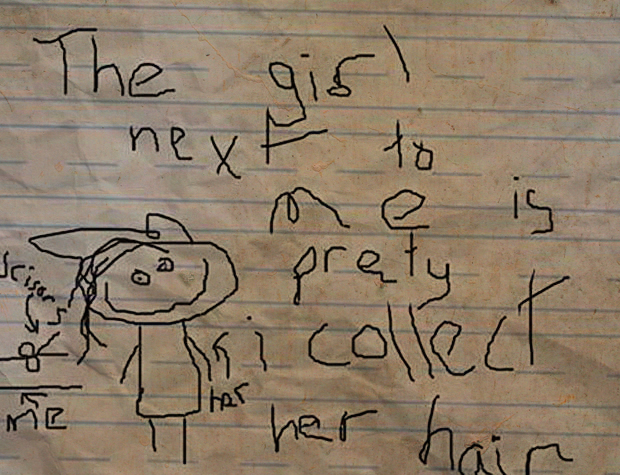 The girl
next to
me is
prety
i collect
her hair
scisors
me
her